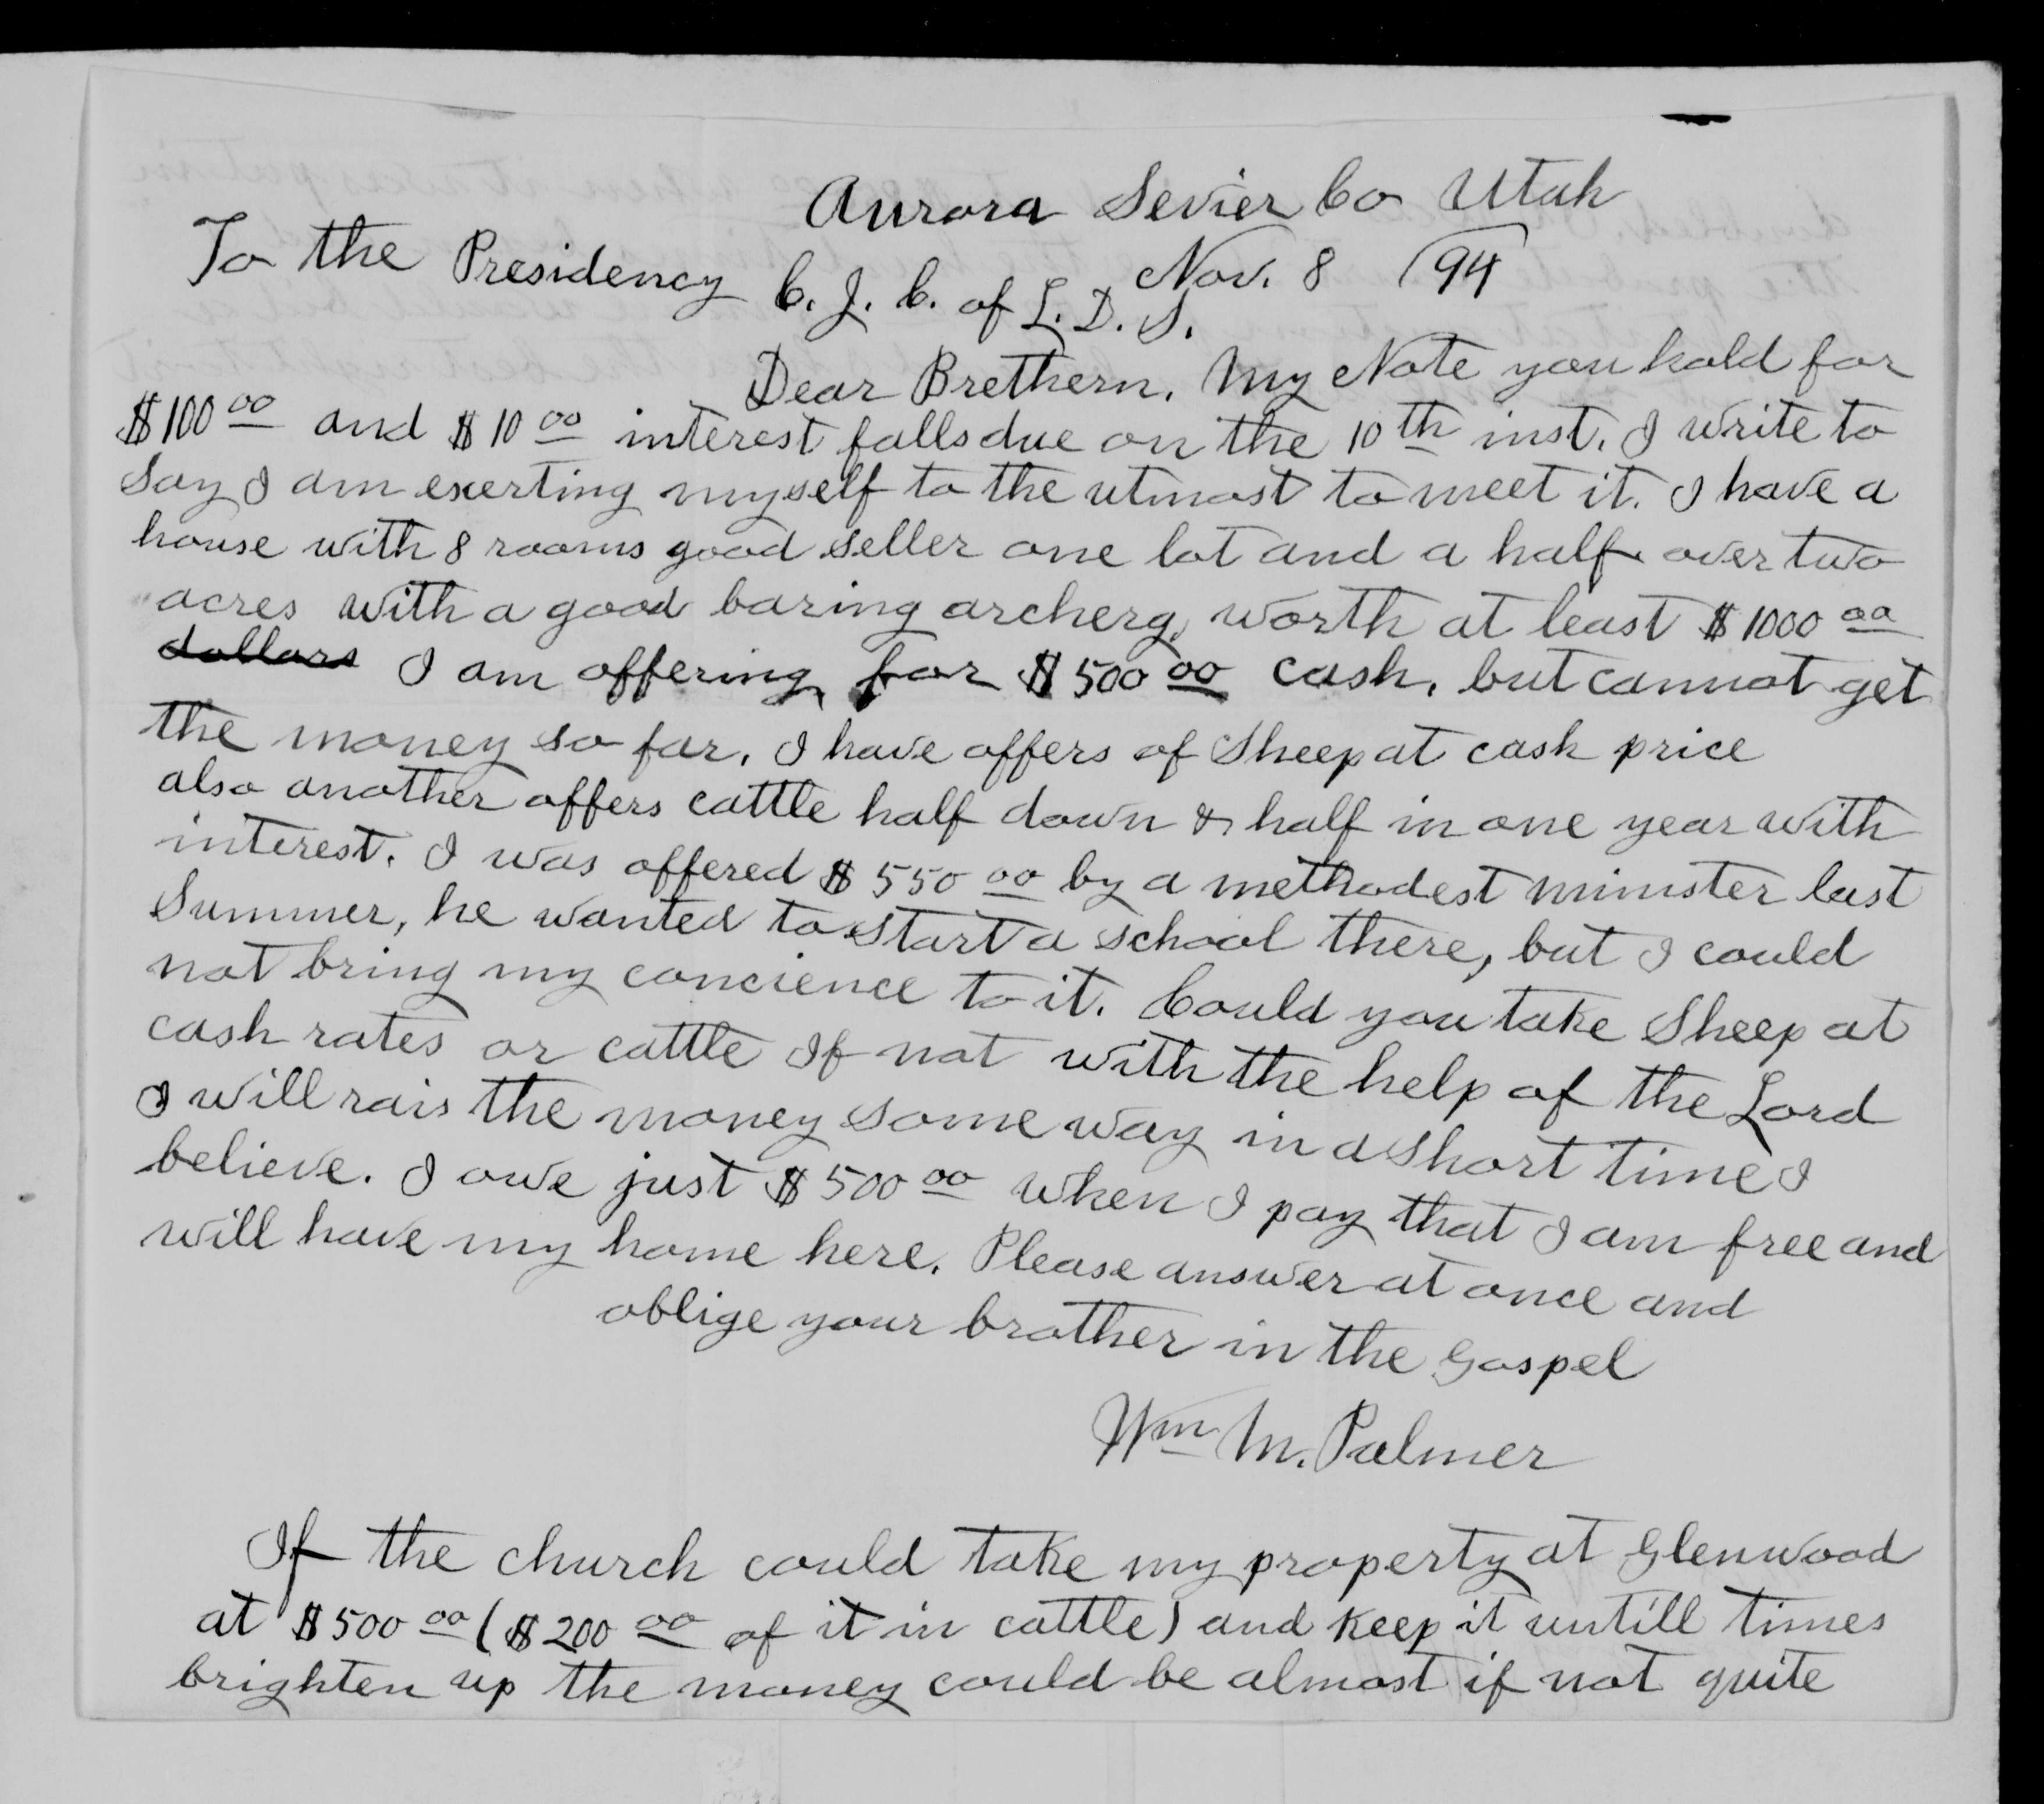 Aurora Sevier Co Utah
Nov. 8 /94
To the Presidency C. J. C. of L. D. S.
Dear Brethern. My Note you hold for
$100 00 and $10 00 interest falls due on the 10th inst. I write to
say I am exerting myself to the utmost to meet it. I have a
house with 8 rooms good seller one lot and a half over two
acres with a good baring archerg, worth at least $1000 00
dollars I am offering for $500 00 cash, but cannot get
the money so far. I have offers of Sheep at cash price
also another offers cattle half down & half in one year with
interest. I was offered $550 00 by a methodest minister last
Summer, he wanted to start a school there, but I could
not bring my concience to it. Could you take Sheep at
cash rates or cattle If not with the help of the Lord
I will rais the money some way in a short time I
believe. I owe just $500 00 when I pay that I am free and
will have my home here. Please answer at once and
oblige your brother in the Gospel
Wm M. Palmer
If the church could take my property at Glenwood
at $500 00 ($200 00 of it in cattle) and keep it untill times
brighten up the money could be almost if not quite